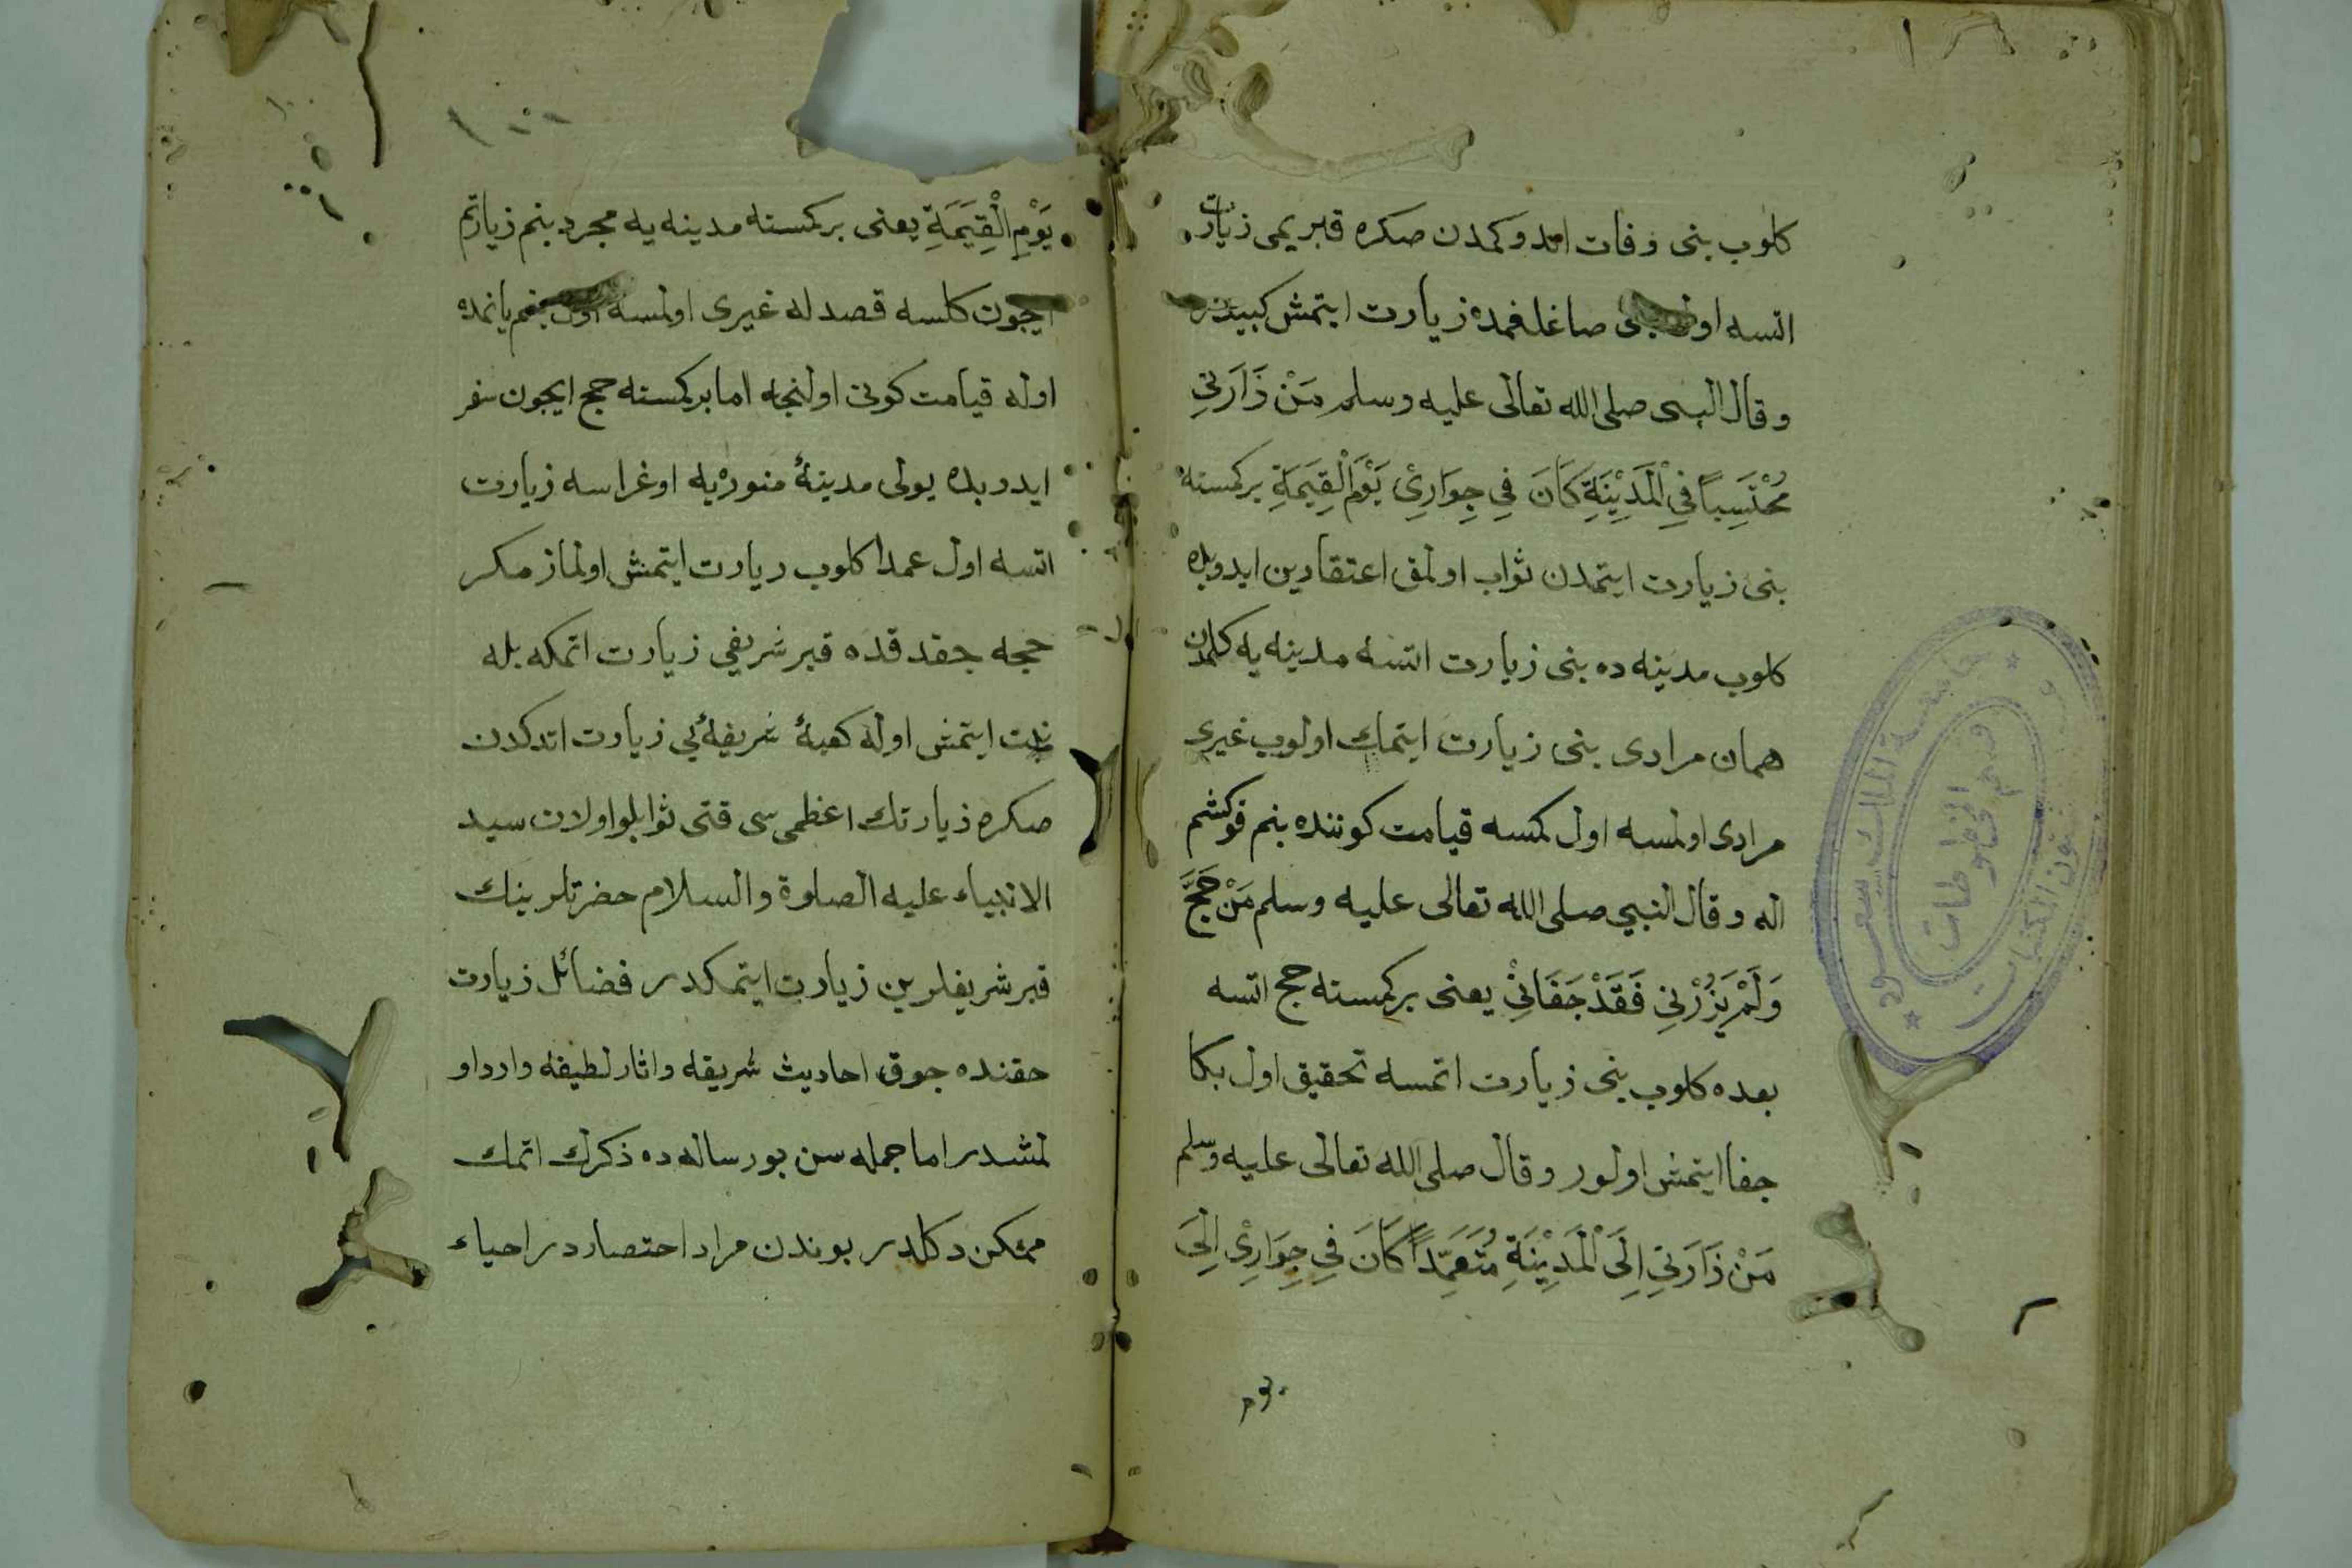 كلوب بنى وفات اتدوكمدن صكره قبريمى زيارت
اتسه صاغلغمده زيارت ايتمش كبيدر
وقال النبى صلى الله تعالى عليه وسلم مَنْ زَارَنِي
مُحْتَسِباً فِي الْمَدِيْنَةِ كَانَ فِي جِوَارِيْ يَوْمَ الْقِيَمَةِ بركمسنه
بنى زيارت ايتمدن ثواب اولمق اعتقادين ايدوبله
كلوب مدينه ده بنى زيارت اتسه مدينه يه كلمدن
همان مرادى بنى زيارت ايتمك اولوب غيرى
مرادى اولمسه اول كمسه قيامت كوننده بنم قوكشم
اله وقال النبي صلى الله تعالى عليه وسلم مَنْ حَجَّ
وَلَمْ يَزُرْنِي فَقَدْ جَفَانِيْ يعنى بركمسنه حج اتسه
بعده كلوب بنى زيارت اتمسه تحقيق اول بكا
جفا ايتمش اولور وقال صلى الله تعالى عليه وسلم
مَنْ زَارَنِي اِلَى الْمَدِيْنَةِ مُتَعَمِّداً كَانَ فِي جِوَارِيْ اِلَىَ
يوم
يَوْمِ الْقِيَمَةِ يعنى بركمسنه مدينه يه مجرد بنم زيارتم
ايچون كلسه قصد له غيرى اولمسه اول بنم يانمده
اوله قيامت كونى اولنجه اما بركمسنه حج ايچون سفر
ايدوبده يولى مدينۀ منوره يه اوغراسه زيارت
اتسه اول عمدا كلوب زيارت ايتمش اولماز مكر
حجه چقدقده قبر شريفي زيارت اتمكه بله
نيت ايتمش اوله كعبۀ شريفۀ يي زيارت اتدكدن
صكره زيارتك اعظمى سى قتى ثوابلو اولان سيد
الانبياء عليه الصلوة والسلام حضرتلرينك
قبر شريفلرين زيارت ايتمكدر فضائل زيارت
حقنده چوق احاديث شريفه واثار لطيفه وارد او
لمشدر اما جمله سن بو رساله ده ذكرك اتمك
ممكن دكلدر بوندن مراد اختصاردر احياء
جامعة الملك سعود
شئون المكتبات
قسم المخطوطات